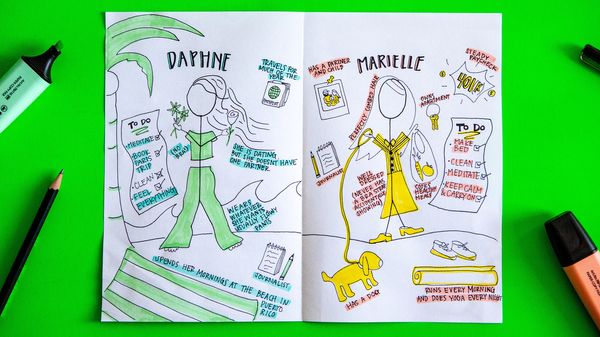 DAPHNE
TRAVELS FOR
MUCH OF THE
YEAR
TO DO
MEDITATE
BOOK
PARIS
TRIP
CLEAN
FEEL
EVERYTHING
SHE IS DATING
BUT SHE DOESN'T HAVE
ONE PARTNER
WEARS
WHATEVER
SHE WANTS
USUALLY FLOWY
PANTS
JOURNALIST
SPENDS HER MORNINGS AT THE BEACH IN
PUERTO
RICO
MARIELLE
HAS A PARTNER
AND CHILD
PERFECTLY COMBED HAIR
OWNS
APARTMENT
STEADY
PAYCHECK
401K
JOURNALIST
WELL
DRESSED
(NEVER HAS
A BRA STRAP
ACCIDENTALLY
SHOWING)
COOKS
HEALTHY
MEALS
TO DO
MAKE
BED
CLEAN
MEDITATE
KEEP CALM
& CARRY ON
HAS A DOG
RUNS EVERY MORNING
AND DOES YOGA EVERY NIGHT